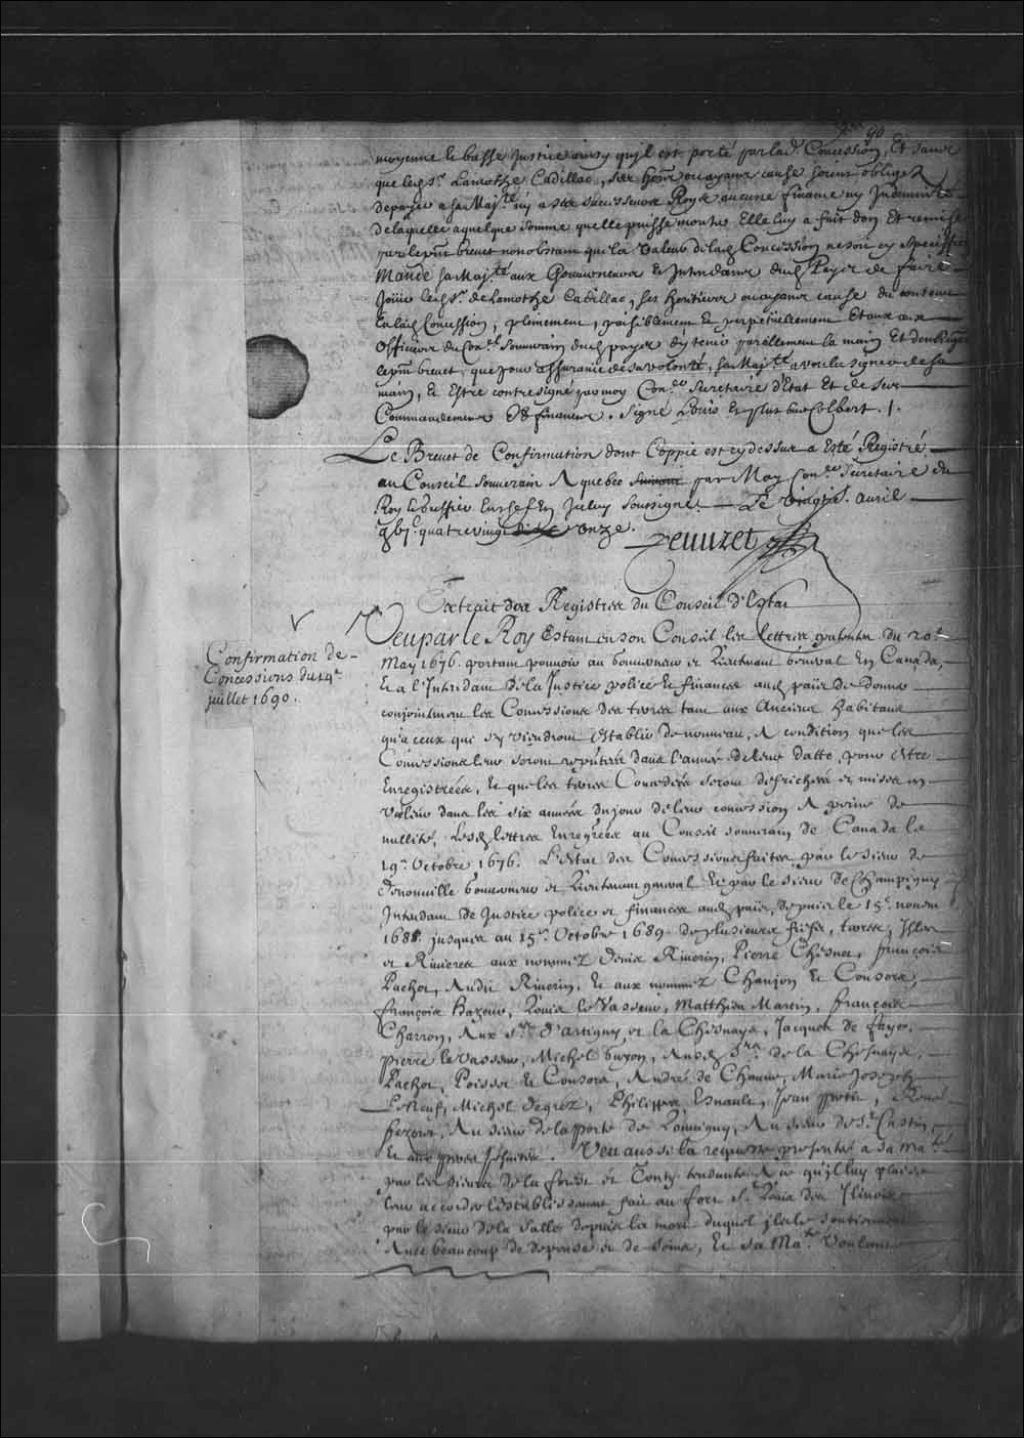 90
moyenne & basse Justice ainsy qu'jl est porté par lad. Concession, Et sans
que led. Sr. Lamothe Cadillac, ses hoirs ou ayans cause soient obligez
de payer a sa Maj.té ny a ses successeurs Roys aucune finance ny Indemnité
de laquelle a quelque somme quelle puisse monter Elle luy a fait don Et remise
par le pnt brevet nonobstant que la valeur de lad. Concession ne soit cy Speciffié
Mande sa Maj.té aux Gouverneurs & Intendans dud. Pays de faire
Joüir led. Sr. de Lamothe Cadillac, ses heritiers ou ayans cause du contenu
En lad. Concession, pleinement, paisiblement & perpetuellement Et aux
Officiers du Con.el Souverain dud. pays d'y tenir pareillement la main Et
le pnt brevet, que pour assurance de sa volonté, sa Maj.té a voulu signer de sa
main, & Estre contresigné par moy Con.er Secretaire d'Etat Et de ses
Commandemens & finances. Signé Louis & plus bas Colbert./.
Le Brevet de Confirmation dont Coppie est cy dessus a Esté Registré
au Conseil souverain A quebec par Moy Con.er Secretaire du
Roy Greffier En chef En Jceluy Soussigné. Le vingt Avril
gbj.c quatre vingt onze.
Peuuret
Extrait des Registres du Conseil d'Estat
Veu par le Roy Estant en son Conseil les lettres patentes du 20.e
May 1676. portant pouvoir au Gouverneur & Lieutenant General En Canada,
& a l'Intendant de la Justice police & finances aud. païs de donner
conjointement les Concessions des terres tant aux Anciens habitans
qu'a ceux qui s'y viendront establir de nouveau, A condition que les
Concessions leur seront dans l'année de leur datte, pour estre
Enregistrées, & que les terres Concedées seront defrichées & mises en
valeur dans les six années du jour de leur concession A peine de
nullité, Lesd. lettres Enregrées au Conseil souverain de Canada le
19.e Octobre 1676. L'Estat des Concessions faites par le sieur de
Denonville Gouverneur & Lieutenant general & par le sieur de Champigny
Intendant de Justice police & finances aud. païs, depuis le 15.e novem
1688. jusques au 15.e Octobre 1689. de plusieurs fiefs, terres, Isles
& Rivieres aux nommez Denis Riverin, Pierre Chesnet, françois
Pachot, André Riverin, & aux nommez Chanjon & Consors,
françois Hazeur, Louis le Vasseur, Matthieu Martin, françois
Charron, Aux Srs. d'artigny & la Chesnaye, Jacques de fayes,
pierre levasseur, Michel guyon, Ausd. Srs. de la Chesnaye,
Pachot, & Consors, André de Chaune, Marie Joseph
Leneuf, Michel degrez, Philippes Esnault, Jean Petit, René
fezeret, Au sieur de laporte de Louvigny, Au sieur de St. Castin,
& aux peres Jesuites. Veu aussi la requeste presentée a sa Ma.té
par les sieurs de la forest & Tonty tendante A ce qu'jl luy plaise
leur accorder l'establissement fait au fort St. Loüis des Jlinois
par le sieur de la Salle depuis la mort duquel jls le soutiennent
Avec beaucoup de depense & de soins, & sa Ma.té Voulant
Confirmation de
Concessions du 14.e
juillet 1690.